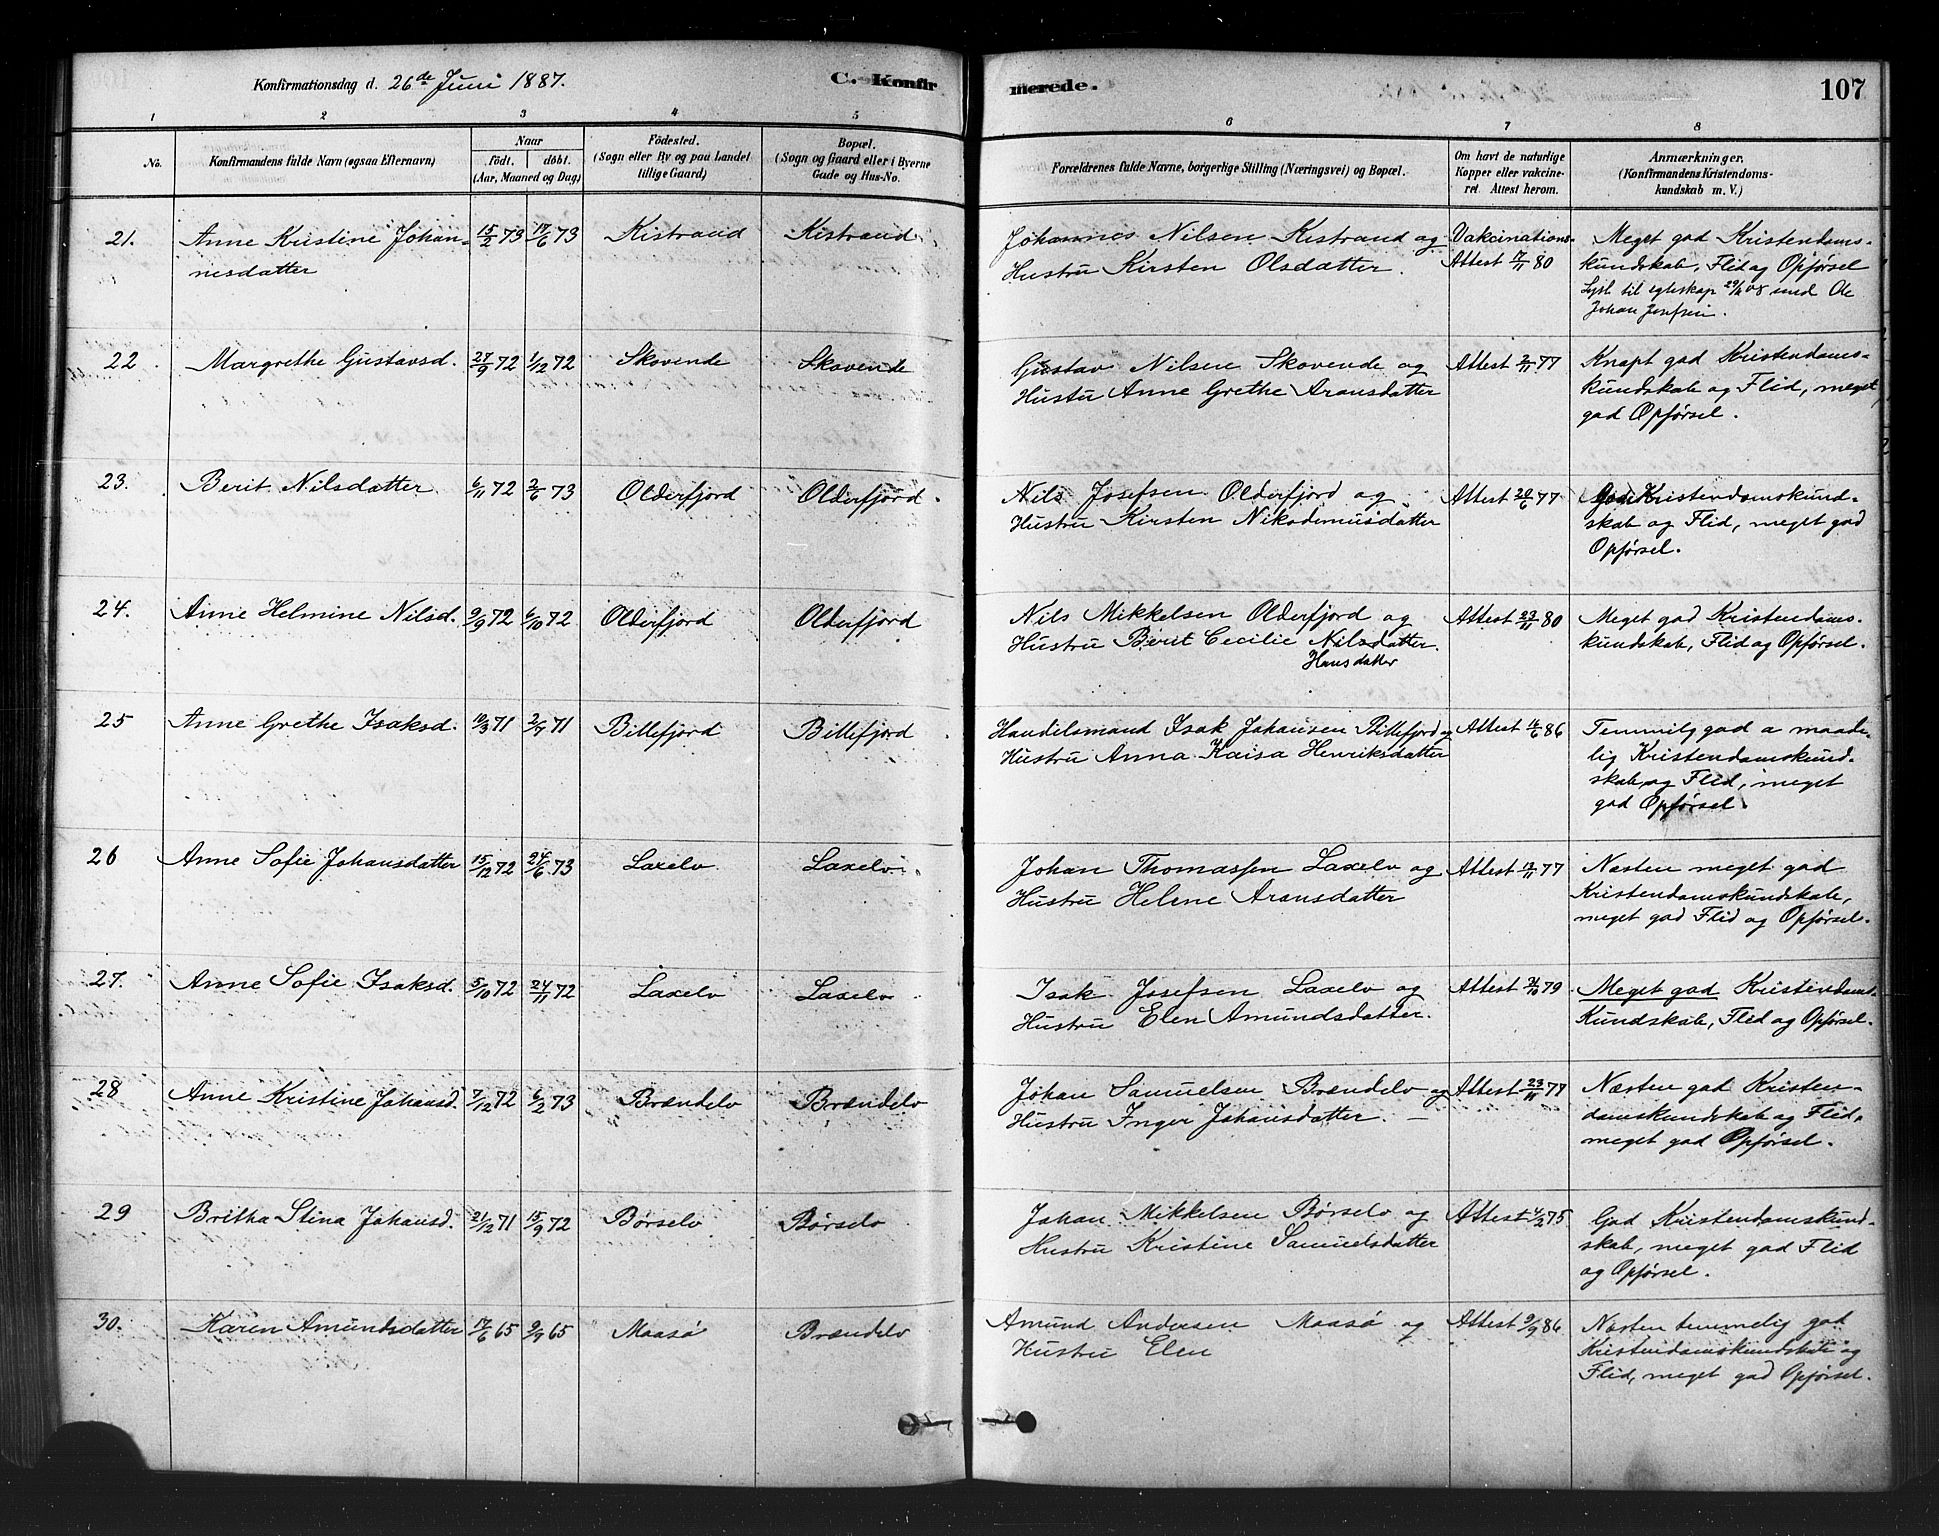 Konfirmationsdag d. 26de Juni 1887.
C. Konfirmerede.
107
1 2 3 4 5 6 7 8
No.
Konfirmandens fulde Navn (ogsaa Efternavn)
Naar
födt. döbt.
(Aar, Maaned og Dag)
Födested.
(Sogn eller By og paa Landet
tillige Gaard)
Bopæl.
(Sogn og Gaard eller i Byerne
Gade og Hus-No.
Forældrenes fulde Navne, borgerlige Stilling (Næringsvei) og Bopæl.
Om havt de naturlige
Kopper eller vakcine-
ret. Attest herom.
Anmærkninger.
(Konfirmandens Kristendoms-
kundskab m. V.)
21. Anne Kristine Johan- 15/2 73 17/6 73 Kistrand Kistrand Johannes Nilsen Kistrand og Vakcinations- Meget god Kristendoms-
nesdatter Hustru Kirsten Olsdatter. Attest 17/11 80 kundskab, Flid og Opførsel
Lyst til egteskap 29/4 08 med Ole
Johan Josefsen.
22 Margrethe Gustavsd. 27/9 72 1/12 72 Skovende Skovende Gustav Nilsen Skovende og Attest 2/11 77 Knapt god Kristendoms-
Hustu Anne Grethe Aransdatter kundskab og Flid, meget
god Opførsel.
23. Berit Nilsdatter 6/11 72 2/6 73 Olderfjord Olderfjord. Nils Josefsen Olderfjord og Attest 20/6 77 God Kristendomskund-
Hustru Kirsten Nikodemusdatter skab og Flid, meget god
Opførsel.
24. Anne Helmine Nilsd. 9/9 72 6/10 72 Olderfjord Olderfjord Nils Mikkelsen Olderfjord og Attest 23/11 80 Meget god Kristendoms-
Hustru Berit Cecilie Nilsdatter. kundskab, Flid og Opførsel.
Hansdatter
25 Anne Grethe Isaksd. 10/3 71 2/7 71 Billefjord Billefjord Handelsmand Isak Johansen Billefjord og Attest 14/6 86 Temmelig god a maade-
Hustru Anna Kaisa Henriksdatter lig Kristendomskund-
skab og Flid, meget
god Opførsel.
26 Anne Sofie Johansdatter 15/12 72 24/6 73 Laxelv Laxelv Johan Thomassen Laxelv og Attest 13/11 77 Næsten meget god
Hustru Helene Aransdatter Kristendomskundskab,
meget god Flid og Opførsel.
27. Anne Sofie Isaksd. 5/10 72 24/11 72 Laxelv Laxelv Isak Josefsen Laxelv og Attest 2/10 79 Meget god Kristendoms-
Hustru Elen Amundsdatter. Kundskab, Flid og Opførsel.
28 Anne Kristine Johansd. 7/12 72 6/2 73 Brændelv Brændelv Johan Samuelsen Brændelv og Attest 23/11 77 Næsten god Kristen-
Hustru Inger Johansdatter. — domskundskab og Flid,
meget god Opførsel.
29 Britha Stina Johansd. 21/12 71 15/9 72 Børselv Børselv Johan Mikkelsen Børselv og Attest 4/2 75 God Kristendomskund-
Hustru Kristine Samuelsdatter skab, meget god Flid
og Opførsel.
30. Karen Amundsdatter 17/6 65 9/7 65 Maasø Brændelv Amund Andersen Maasø og Attest 9/9 86 Næsten temmelig god
Hustru Elen Kristendomskundskab og
Flid, meget god Opførsel.